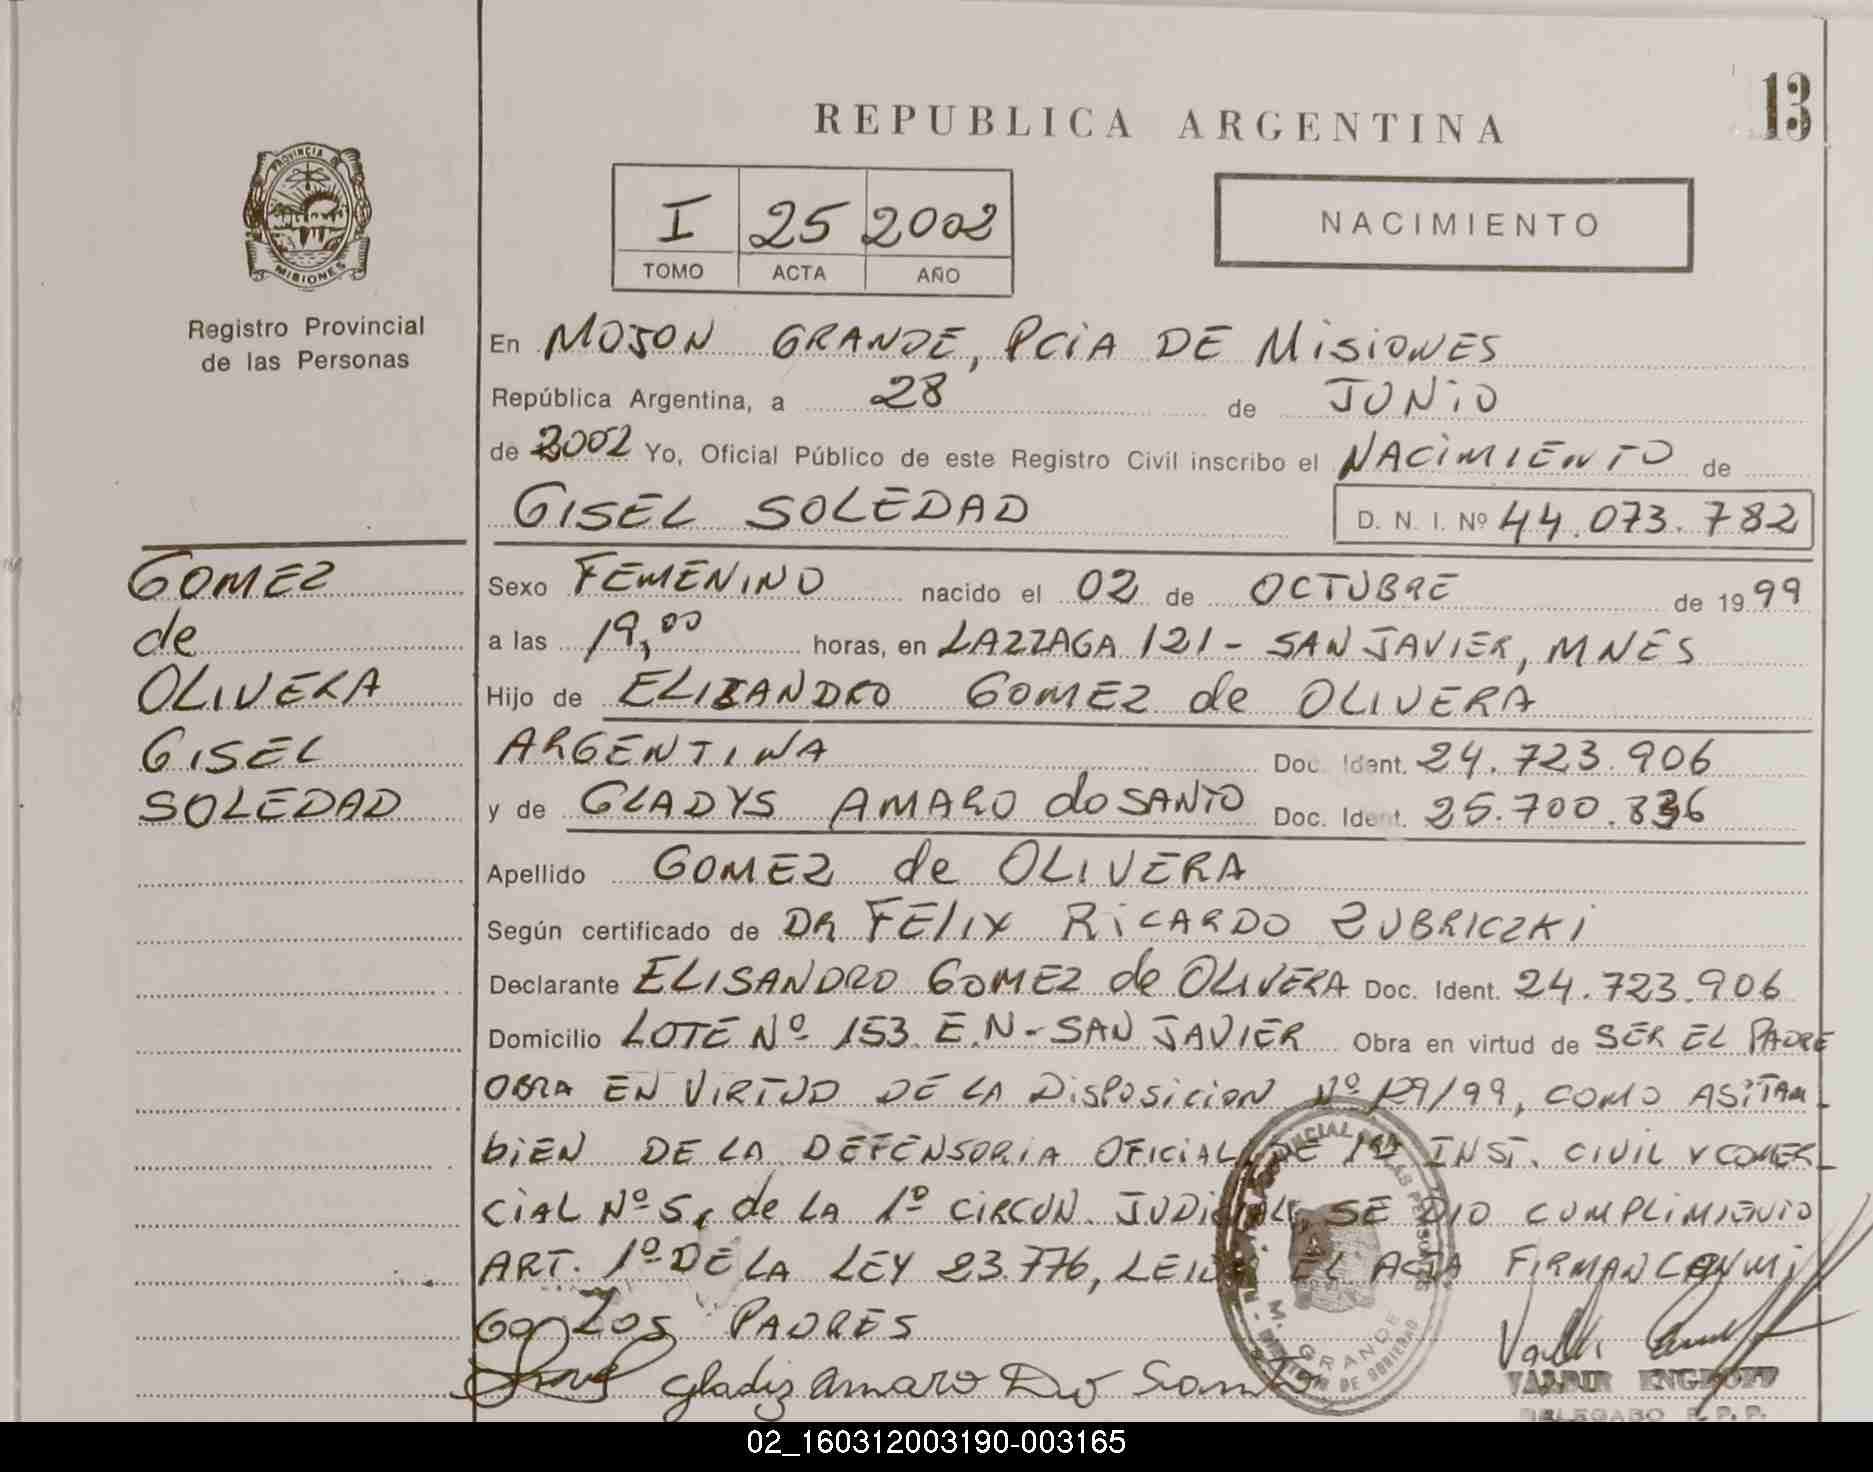 13
REPUBLICA ARGENTINA
PROVINCIA DE
MISIONES
I 25 2002
TOMO ACTA AÑO
NACIMIENTO
Registro Provincial
de las Personas
En MOJON GRANDE, PCiA DE MisiONES
República Argentina, a 28 de JUNiO
de 2002 Yo, Oficial Público de este Registro Civil inscribo el NACiMIENTO de
GISEL SOLEDAD D. N. I. Nº 44.073.782
GOMEZ
de
OLIVERA
GISEL
SOLEDAD
Sexo FEMENINO nacido el 02 de OCTUBRE de 1999
a las 19,00 horas, en LAZZAGA 121 - SAN JAVIER, MNES
Hijo de ELIZANDRO GOMEZ de OLIVERA
ARGENTINA Doc. Ident. 24.723.906
y de GLADYS AMARO doSANTO Doc. Ident. 25.700.836
Apellido GOMEZ de OLIVERA
Según certificado de DR FELIX RiCARDO ZUBRICZKi
Declarante ELISANDRO GOMEZ de OLIVERA Doc. Ident. 24.723.906
Domicilio LOTE Nº 153 E.N - SAN JAVIER Obra en virtud de SER EL PADRE
OBRA EN VIRTUD DE LA DisPOSiCiON Nº 129/99, COMO ASiTAM-
biEN DE LA DEFENSORiA OFICiAL DE 1ª INST. CIVIL Y COMER-
CiAL Nº 5, de LA 1º CiRCUN. JUDiCiAL, SE DIO CUMPLiMIENTO
ART. 1º DE LA LEY 23.776, LEIDA EL ACTA FIRMAN CONMi
GO LOS PADRES
Gladiz Amaro Do Santo
M. GRANDE
VALDIR ENGROFF
DELEGADO R.P.P.
02_160312003190-003165